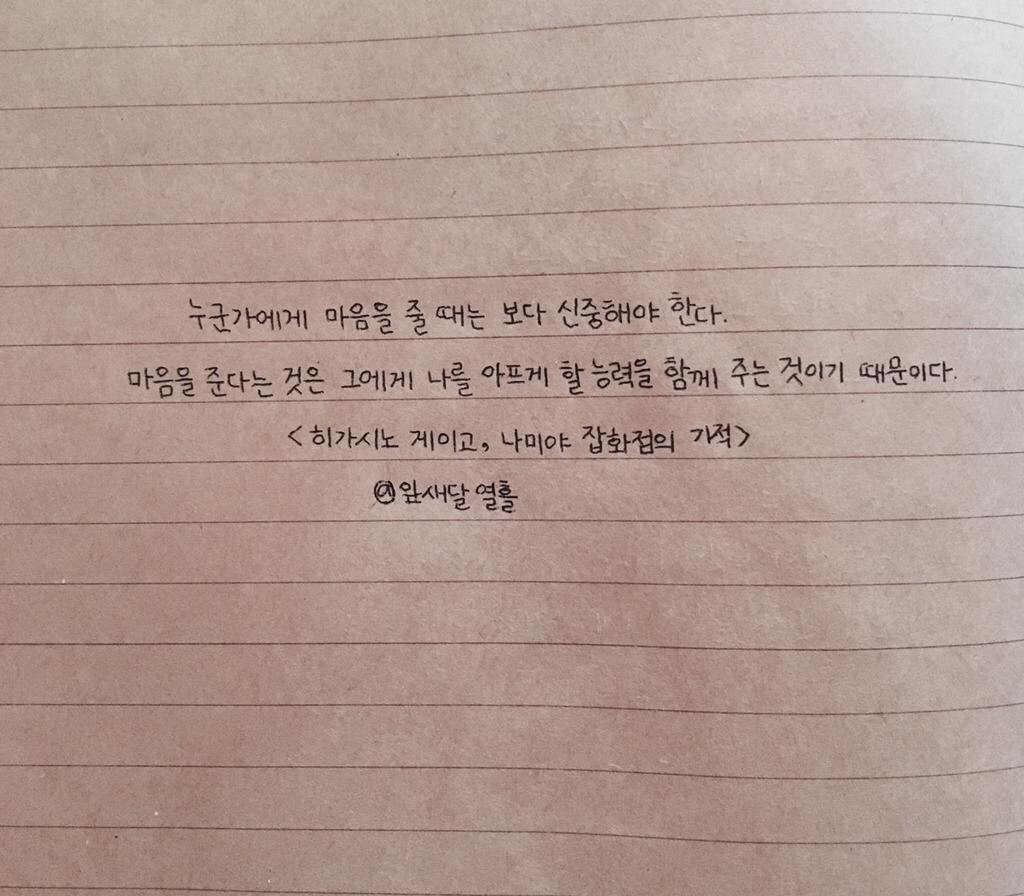 누군가에게 마음을 줄 때는 보다 신중해야 한다.
마음을 준다는 것은 그에게 나를 아프게 할 능력을 함께 주는 것이기 때문이다.
<히가시노 게이고, 나미야 잡화점의 기적>
@앞새달열흘